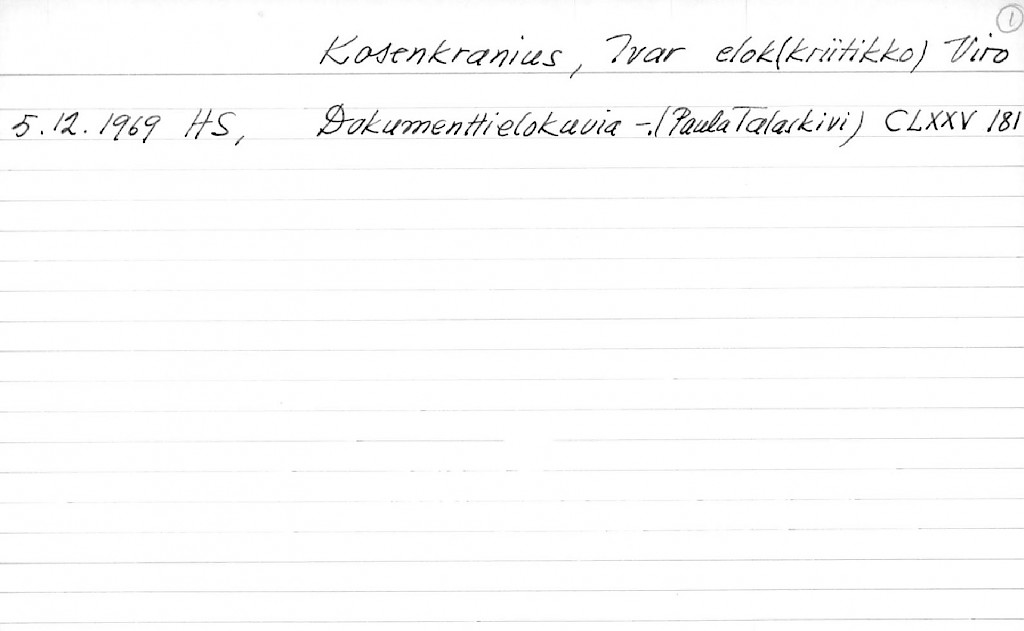 1
Kosenkranius, Ivar elok(kriitikko) Viro
5.12.1969 HS, Dokumenttielokuvia -.(Paula Talaskivi) CLXXV 181